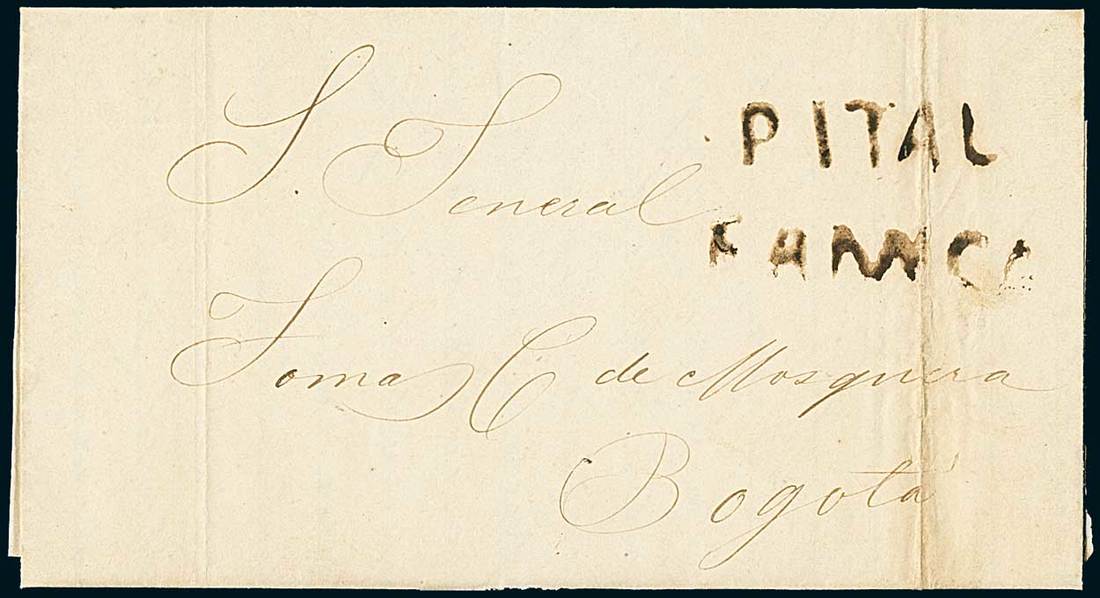 PITAL
FRANCA
S. General
Tomas C de Mosquera
Bogotá